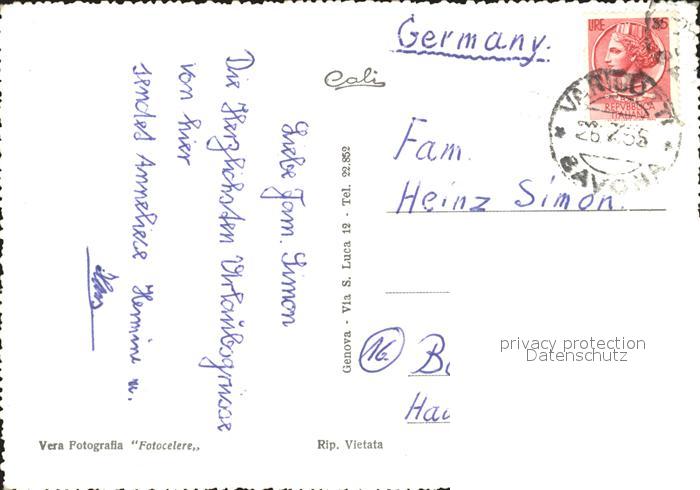 Germany.
LIRE 35
REPVBBLICA
ITALIANA
VARIGOTTI
SAVONA
Cali
Fam.
Heinz Simon.
16
Ha
privacy protection
Datenschutz
Liebe Fam. Simon
Die Herzlichsten Urlaubsgrüsse
von hier
sendet Anneliese Hermine u.
Genova - Via S. Luca 12 - Tel. 22.852
Vera Fotografia "Fotocelere,,
Rip. Vietata